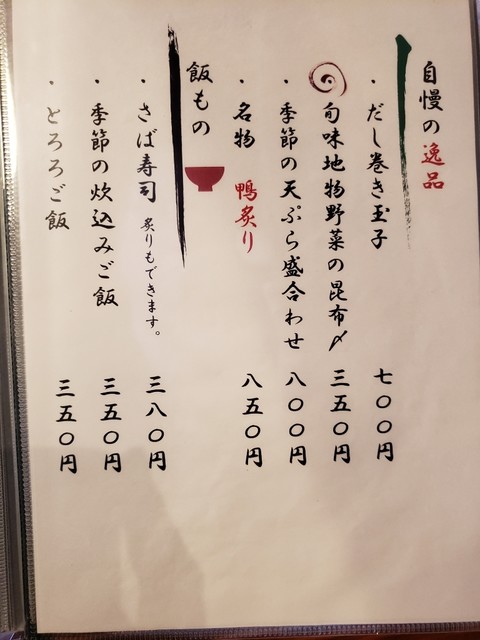 自慢の逸品
・だし巻き玉子 七〇〇円
旬味地物野菜の昆布〆 三五〇円
・季節の天ぷら盛合わせ 八〇〇円
・名物 鴨炙り 八五〇円
飯もの
・さば寿司 炙りもできます。 三八〇円
・季節の炊込みご飯 三五〇円
・とろろご飯 三五〇円